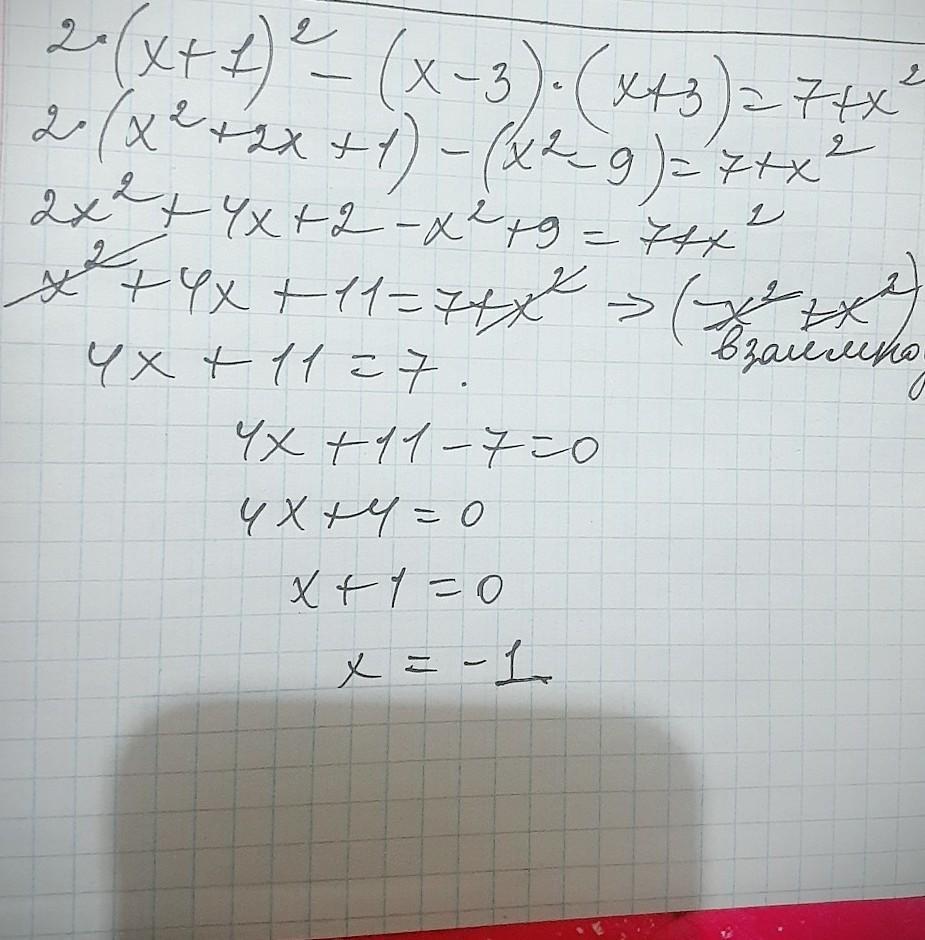 2·(x+1)² – (x–3)·(x+3)=7+x²
2·(x²+2x+1)–(x²–9)=7+x²
2x²+4x+2–x²+9=7+x²
x²+4x+11=7+x² → (–x²+x²)
взаимно
4x+11=7.
4x+11–7=0
4x+4=0
x+1=0
x=–1